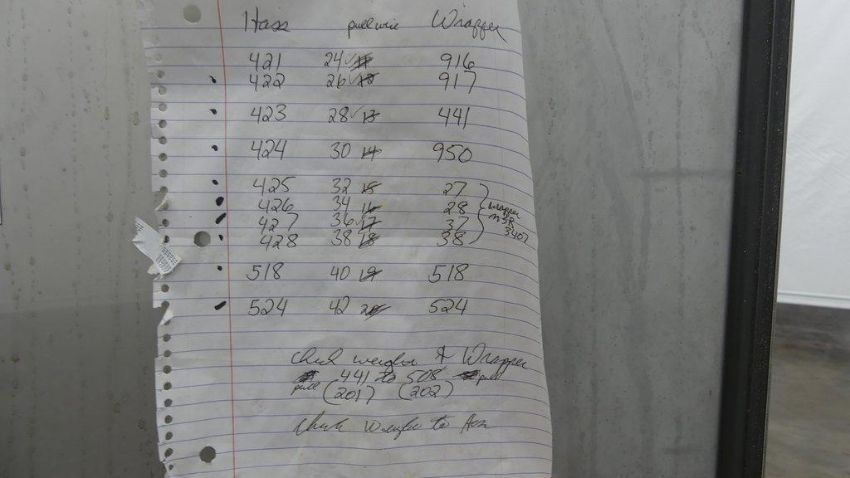 Hass pullwire Wrapper
421 24 11 916
422 26 12 917
423 28 13 441
424 30 14 950
425 32 15 27
426 34 16 28
427 36 17 37
428 38 18 38
wrapper
MSR
3407
518 40 19 518
524 42 20 524
Check weigher & Wrapper
pull 441 to 508 pull
(201) (202)
Check Weigher to